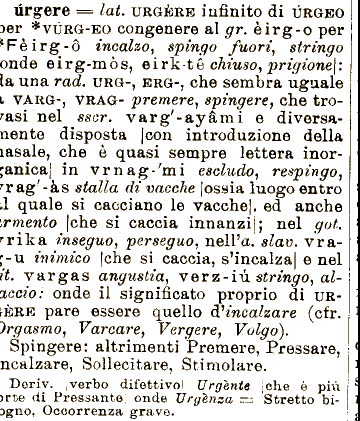 úrgere = lat. URGÈRE infinito di ÚRGEO
per *VÚRG-EO congenere al gr. èirg-o per
*Fèirg-ô incalzo, spingo fuori, stringo
onde eirg-mòs, eirk-tê chiuso, prigione|:
da una rad. URG-, ERG-, che sembra uguale
a VARG-, VRAG- premere, spingere, che tro-
vasi nel sscr. varg'-ayâmi e diversa-
mente disposta |con introduzione della
nasale, che è quasi sempre lettera inor-
ganica| in vrnag-'mi escludo, respingo,
vrag'-às stalla di vacche |ossia luogo entro
al quale si cacciano le vacche|, ed anche
armento |che si caccia innanzi|; nel got.
vrika inseguo, perseguo, nell'a. slav. vra-
g-u inimico |che si caccia, s'incalza| e nel
lit. vargas angustia, verz-iú stringo, al-
laccio: onde il significato proprio di UR-
GÈRE pare essere quello d'incalzare (cfr.
Orgasmo, Varcare, Vergere, Volgo).
Spingere: altrimenti Premere, Pressare,
Incalzare, Sollecitare, Stimolare.
Deriv. |verbo difettivo| Urgènte |che è più
forte di Pressante| onde Urgènza = Stretto bi-
sogno, Occorrenza grave.